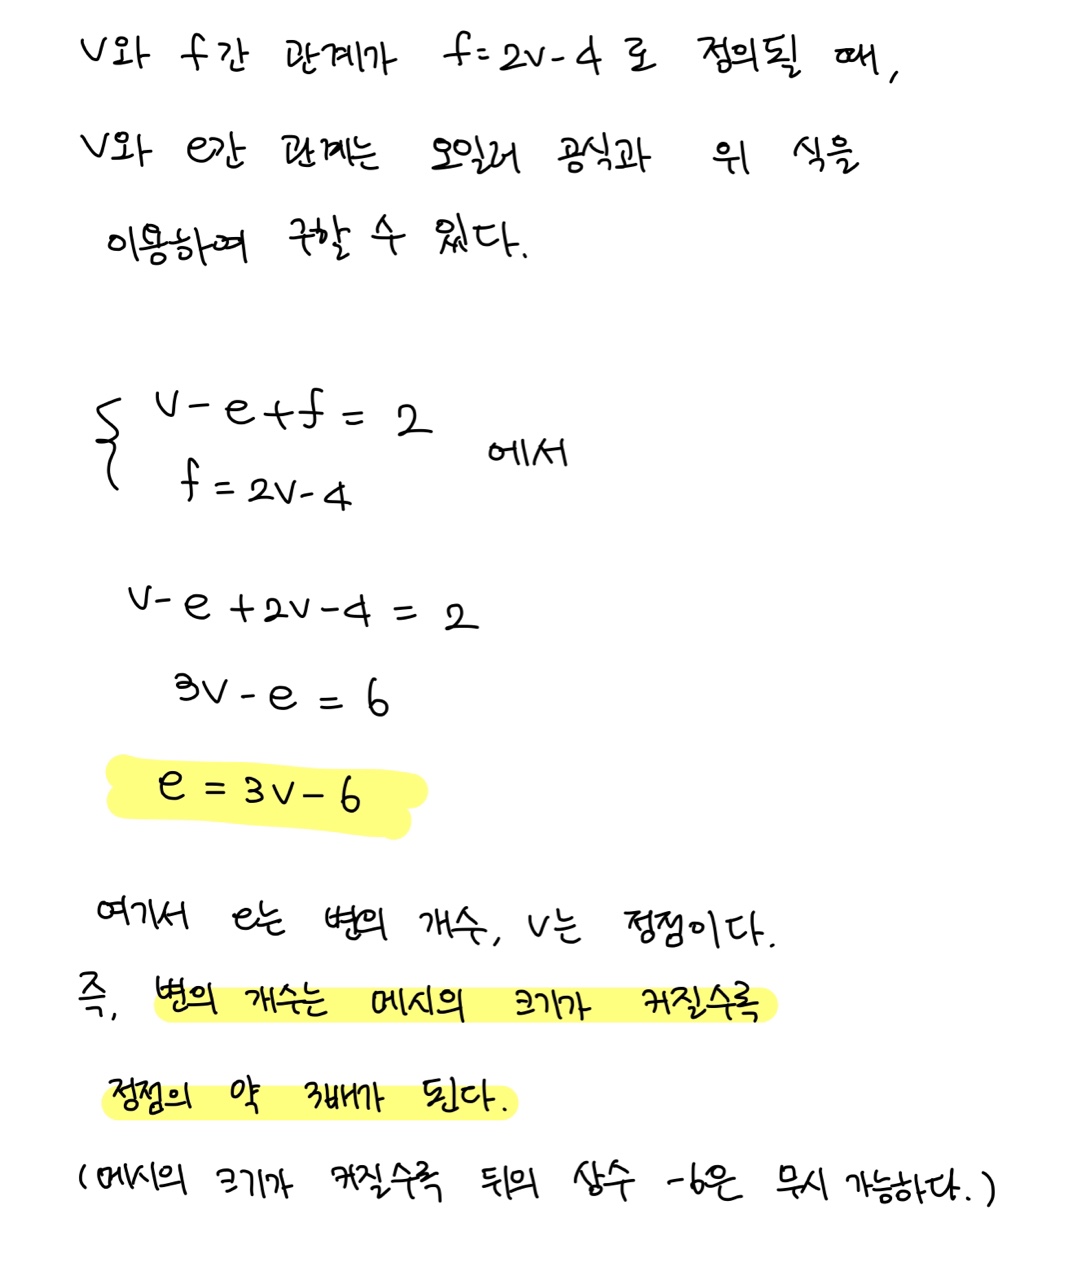 v와 f간 관계가 f=2v-4로 정의될 때,
v와 e간 관계는 오일러 공식과 위 식을
이용하여 구할 수 있다.
{ v-e+f=2
f=2v-4
에서
v-e+2v-4=2
3v-e=6
e=3v-6
여기서 e는 변의 개수, v는 정점이다.
즉, 변의 개수는 메시의 크기가 커질수록
정점의 약 3배가 된다.
(메시의 크기가 커질수록 뒤의 상수 -6은 무시 가능하다.)